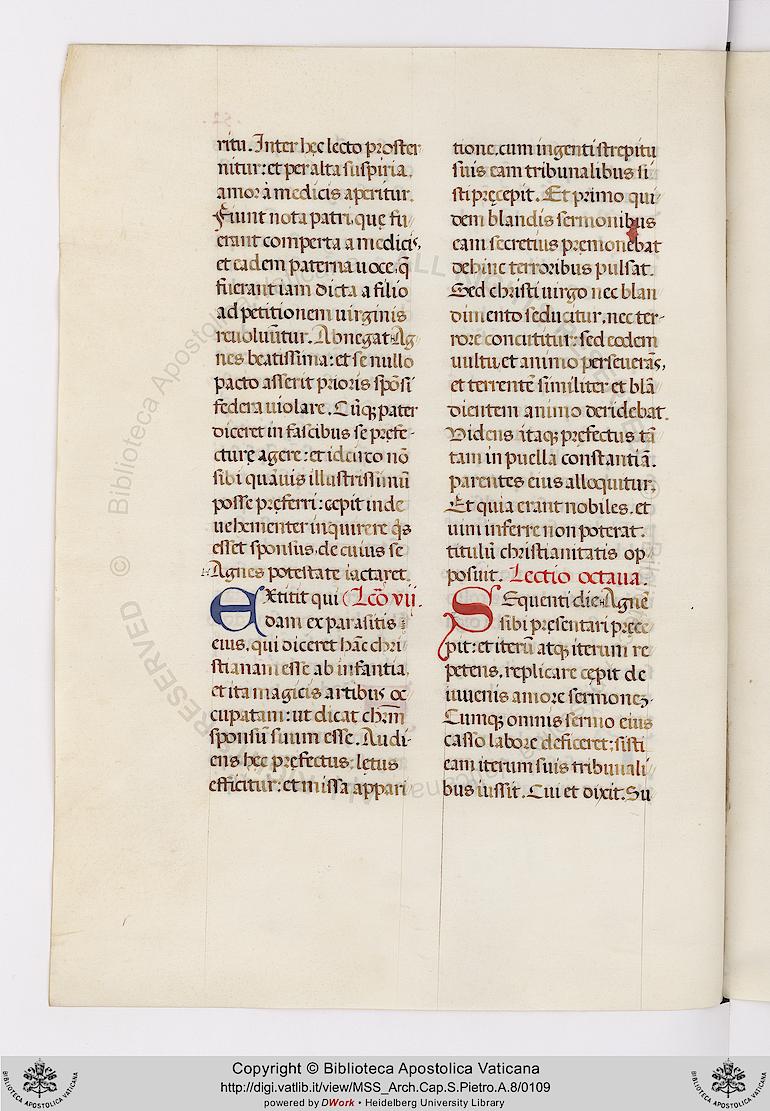 ritu. Inter hęc lecto proster
nitur: et per alta suspiria,
amor à medicis aperitur.
Fiunt nota patri, quę fu
erant comperta a medicis,
et eadem paterna uoce, q̃
fuerant iam dicta a filio
ad petitionem uirginis
reuoluuntur. Abnegat Ag
nes beatissima: et se nullo
pacto asserit prioris spõsi
federa uiolare. Cũq; pater
diceret in fascibus se pręfe-
cturę agere: et idcirco nõ
sibi quãuis illustrissimũ
posse pręferri: cepit inde
uehementer inquirere q̃s
esset sponsus, de cuius se
Agnes potestate iactaret.
Extitit qui Lcõ vij.
dam ex parasitis
eius, qui diceret hãc chri
stianam esse ab infantia,
et ita magicis artibus oc
cupatam: ut dicat chr̃m
sponsũ suum esse. Audi-
ens hęc pręfectus: lętus
efficitur: et missa appari
tione, cum ingenti strepitu
suis eam tribunalibus si
sti pręcepit. Et primo qui
dem blandis sermonibus
eam secretius premonebat
dehinc terroribus pulsat.
Sed christi uirgo nec blan
dimento seducitur, nec ter-
rore concutitur: sed eodem
uultu, et animo perseuerãs,
et terrentẽ similiter et blã
dientem animo deridebat.
Videns itaq; pręfectus tã
tam in puella constantiã.
parentes eius alloquitur,
Et quia erant nobiles, et
uim inferre non poterat.
titulũ christianitatis op-
posuit. Lectio octaua.
SEquenti die Agnẽ
sibi pręsentari pręce
pit: et iterũ atq; iterum re
petens, replicare cępit de
iuuenis amore sermones.
Cumq; omnis sermo eius
casso labore deficeret: sisti
eam iterum suis tribunali
bus iussit. Cui et dixit. Su
© Biblioteca Apostolica Vaticana ALL RIGHTS RESERVED
Copyright © Biblioteca Apostolica Vaticana
http://digi.vatlib.it/view/MSS_Arch.Cap.S.Pietro.A.8/0109
powered by DWork • Heidelberg University Library
BIBLIOTECA APOSTOLICA VATICANA
BIBLIOTECA APOSTOLICA VATICANA